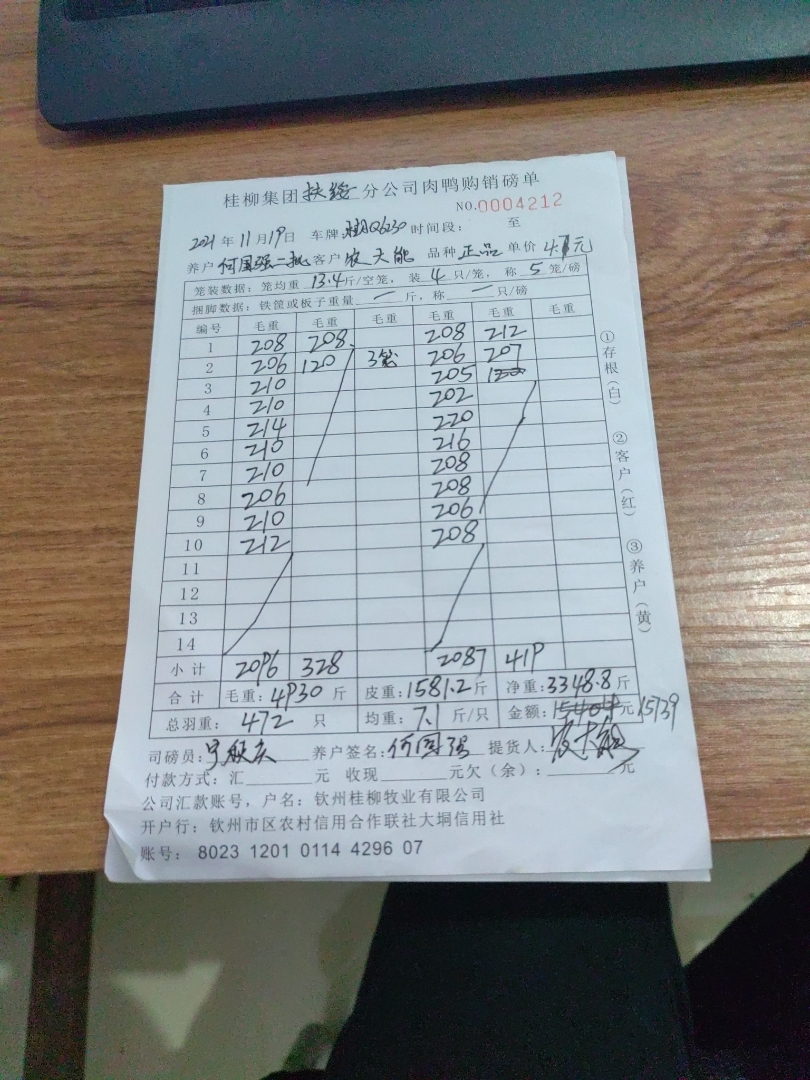 桂柳集团扶绥分公司肉鸭购销磅单
NO.0004212
2021年11月19日 车牌: Q6230 时间段: 至
养户 何国强二批 客户 农大能 品种 正品 单价 4. 元
笼装数据: 笼均重 13.4 斤/空笼, 装 4 只/笼, 称 5 笼/磅
捆脚数据: 铁筐或板子重量 一 斤, 称 一 只/磅
编号 毛重 毛重 毛重 毛重 毛重 毛重
1 208 208 208 212
2 206 120 3笼 206 207
3 210 205 120
4 210 202
5 214 220
6 210 216
7 210 208
8 206 208
9 210 206
10 212 208
11
12
13
14
小计 2096 328 2087 419
合计 毛重: 4930 斤 皮重: 1581.2 斤 净重: 3348.8 斤
总羽重: 472 只 均重: 7.1 斤/只 金额: 15404 元 15739
司磅员: 养户签名: 何国强 提货人: 农大能
付款方式: 汇 元 收现 元欠(余): 元
公司汇款账号, 户名: 钦州桂柳牧业有限公司
开户行: 钦州市区农村信用合作联社大垌信用社
账号: 8023 1201 0114 4296 07
①存根(白)
②客户(红)
③养户(黄)